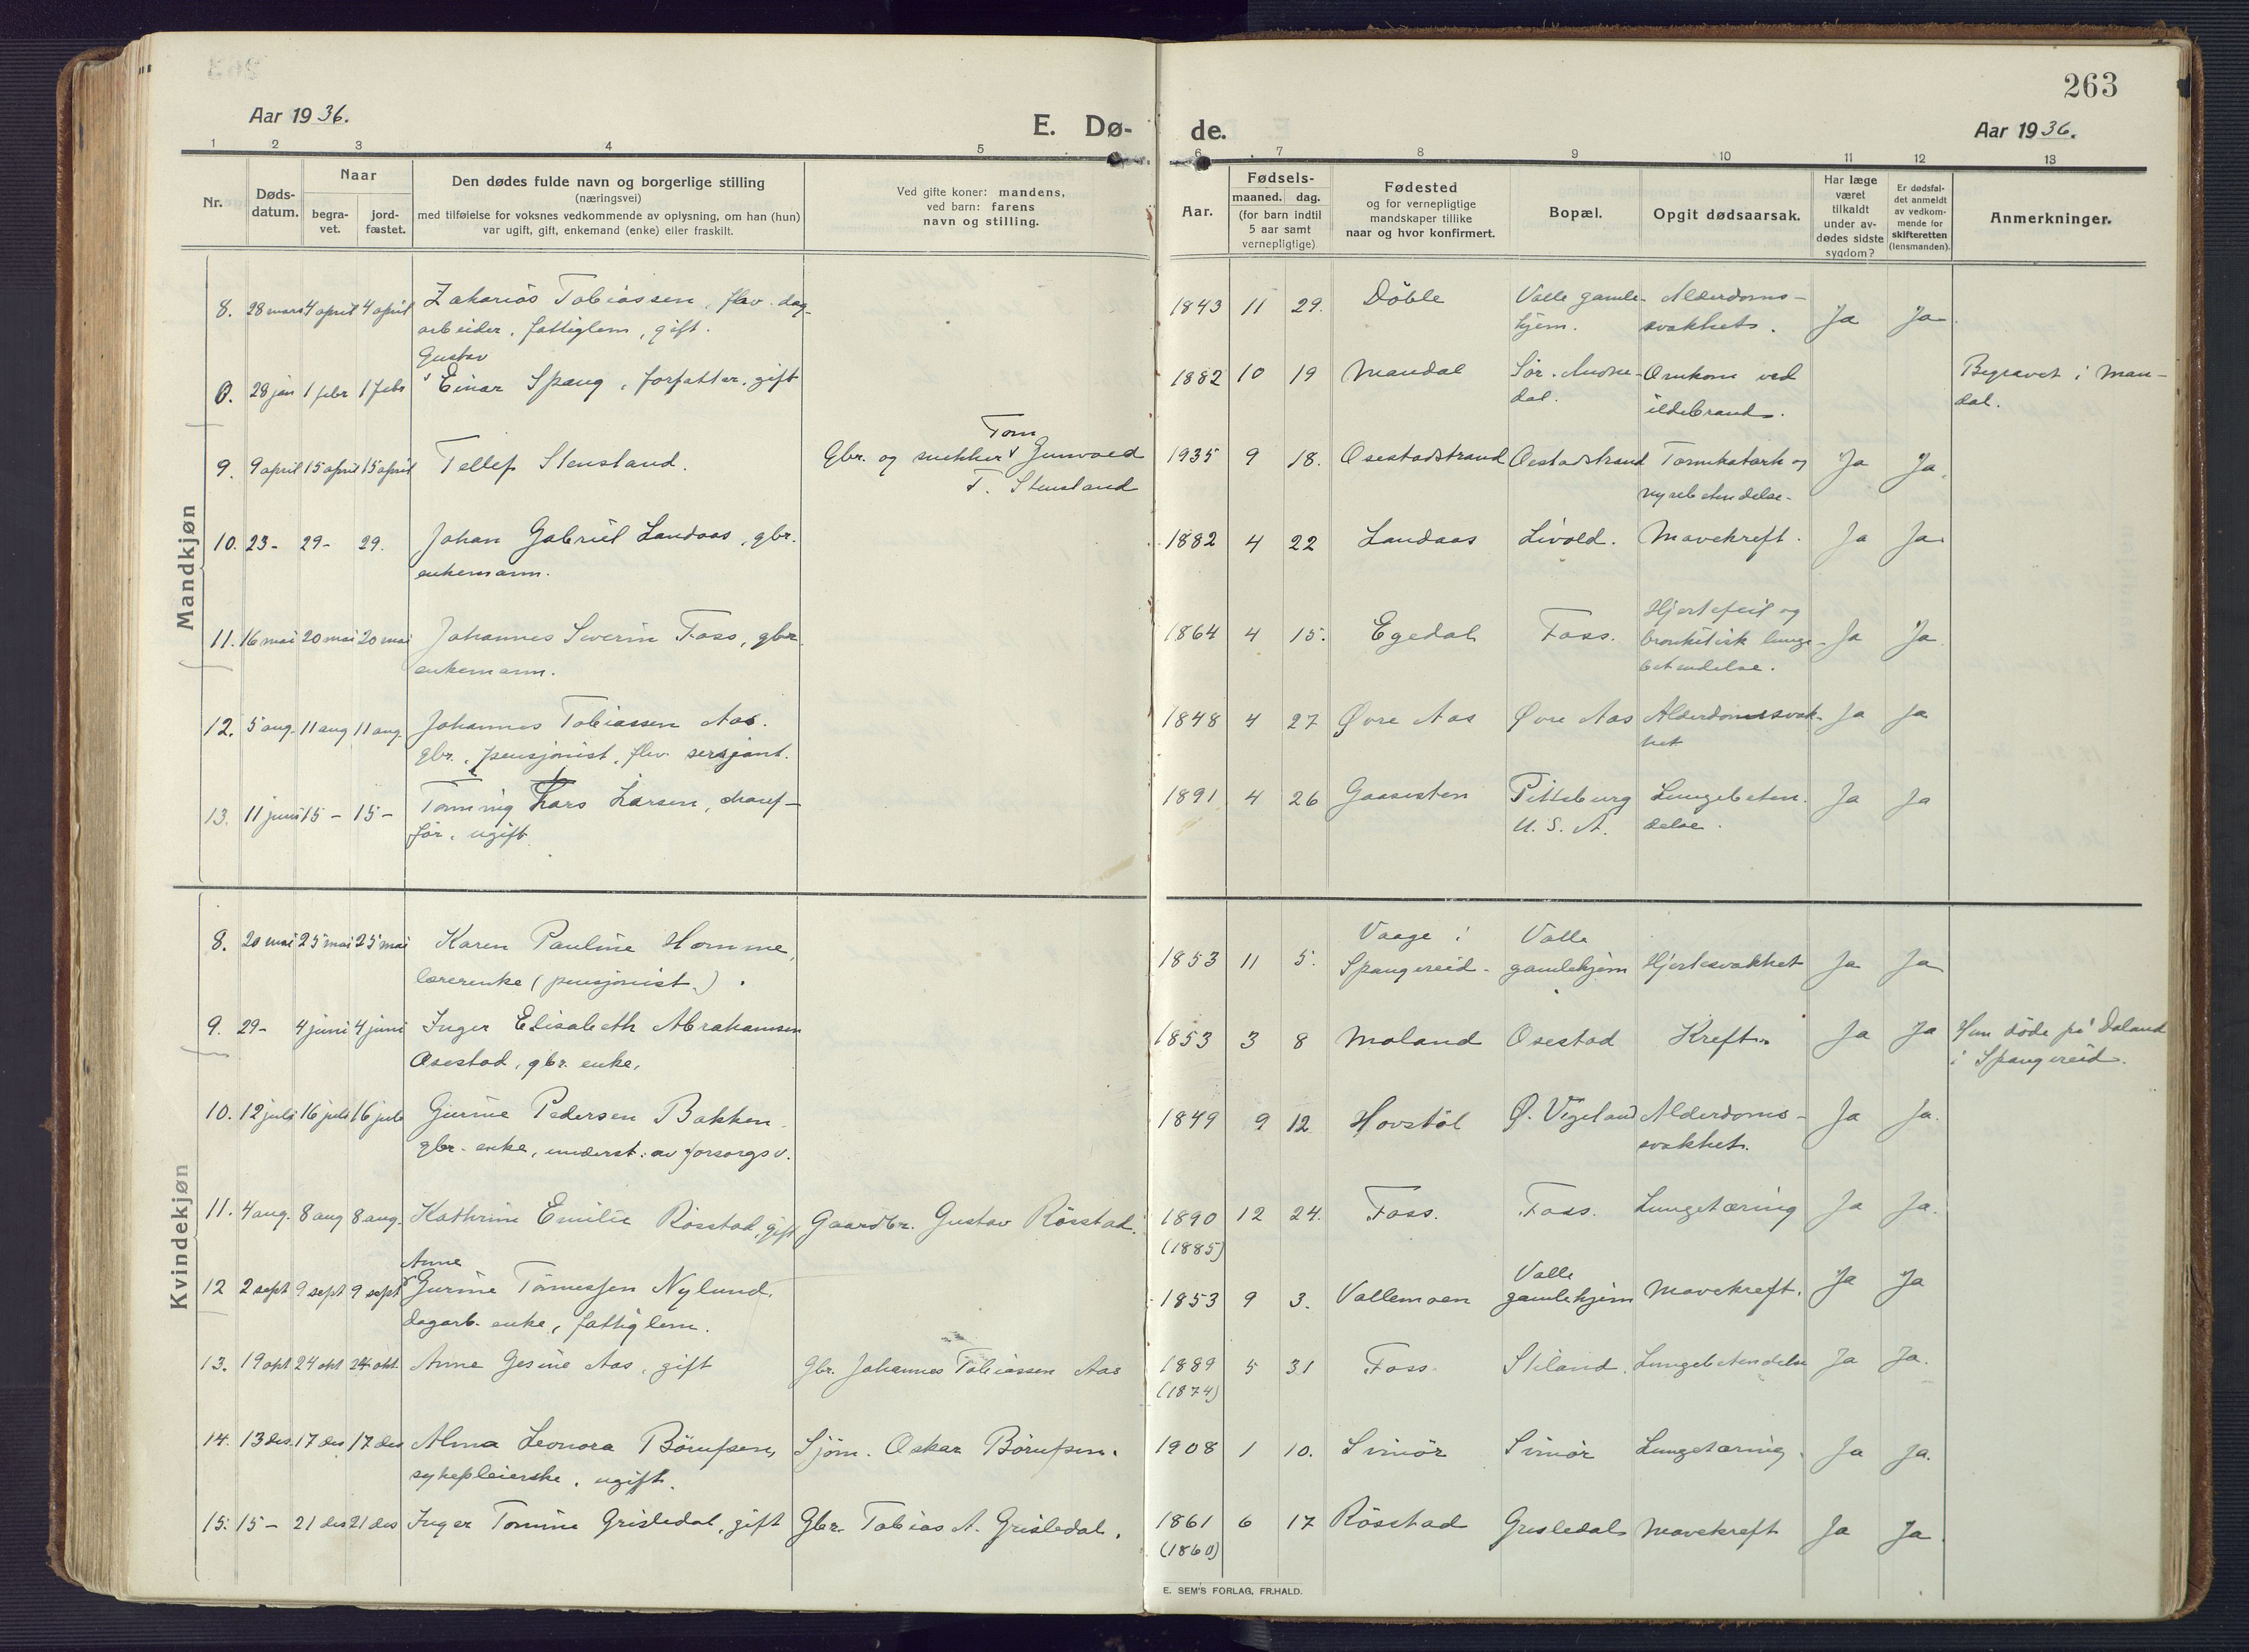 263
Aar 1936.
E. Dø-
de.
Aar 1936.
1 2 3 4 5
6 7 8 9 10 11 12 13
Nr.
Døds-
datum.
Naar
begra-
vet.
jord-
fæstet.
Den dødes fulde navn og borgerlige stilling
(næringsvei)
med tilføielse for voksnes vedkommende av oplysning, om han (hun)
var ugift, gift, enkemand (enke) eller fraskilt.
Ved gifte koner: mandens,
ved barn: farens
navn og stilling.
Aar.
Fødsels-
maaned. dag.
(for barn indtil
5 aar samt
vernepligtige)
Fødested
og for vernepligtige
mandskaper tillike
naar og hvor konfirmert.
Bopæl.
Opgit dødsaarsak.
Har læge
været
tilkaldt
under av-
dødes sidste
sygdom?
Er dødsfal-
det anmeldt
av vedkom-
mende for
skifteretten
(lensmanden).
Anmerkninger.
Mandkjøn
8. 28 mars 4 april 4 april Zakarias Tobiassen, flev. dag- 1843 11 29. Döble Valle gamle- Alderdoms- Ja Ja
arbeider, fattiglem, gift. hjem. svakhet.
Gustav
0. 28 jan 1 febr 1 febr Einar Spang, forfatter, gift 1882 10 19 Mandal Sör-Audne- Omkom ved Begravet i Man-
dal. ildebrand. dal.
Tom
9. 9 april 15 april 15 april Tellef Stensland. Gbr. og snekker Gunvald 1935 9 18. Osestadstrand Oestadstrand Tarmkatarh og Ja Ja.
T. Stensland nyrebetendelse.
10. 23- 29- 29. Johan Gabriel Landaas, gbr. 1882 4 22 Landaas Livold. Mavekreft. Ja Ja
enkemann.
11. 16 mai 20 mai 20 mai Johannes Severin Foss, gbr. 1864 4 15. Egedal Foss. Hjertefeil og
bronkitisk lunge- Ja Ja
enkemann. betendelse.
12. 5 aug. 11 aug 11 aug. Johannes Tobiassen Aas. 1848 4 27 Øvre Aas Øvre Aas Alderdomssvak- Ja Ja
gbr., pensjonist, flev. sersjant. het
13. 11 juni 15- 15- Tønning Lars Larsen, chauf- 1891 4 26 Gaaseten Pittsburg Lungebeten- Ja Ja
för, ugift. U. S. A. delse.
Kvindekjøn
8. 20 mai 25 mai 25 mai Karen Pauline Homme, 1853 11 5. Vaage i Valle
lærerenke (pensjonist.). Spangereid. gamlehjem Hjertesvakhet Ja Ja
9. 29- 4 juni 4 juni Inger Elisabeth Abrahamsen 1853 3 8 Moland Osestad Kreft. Ja Ja Hun döde på Daland
Osestad, gbr. enke. i Spangereid.
10. 12 juli 16 juli 16 juli Gurine Pedersen Bakken 1849 9 12 Hovstöl Ø. Vigeland Alderdoms- Ja Ja.
gbr. enke, underst. av forsorgsv. svakhet.
11. 4 aug. 8 aug 8 aug. Kathrine Emilie Rösstad, gift Gaardbr. Gustav Rösstad. 1890 12 24. Foss. Foss. Lungetæring Ja Ja.
(1885)
Anne
12 2 sept 9 sept 9 sept Gurine Tønnessen Nylund, 1853 9 3. Vallemoen Valle
gamlehjem Mavekreft. Ja Ja
dagarb. enke, fattiglem.
13. 19 okt 24 okt 24 okt. Anne Gesine Aas, gift Gbr. Johannes Tobiassen Aas 1889 5 31 Foss. Stiland. Lungebetendelse Ja Ja.
(1874)
14. 13 des. 17 des 17 des Alma Leonora Börufsen, Sjöm. Oskar Börufsen. 1908 1 10. Svinör Svinör Lungetæring. Ja Ja.
sykepleierske, ugift.
15. 15- 21 des 21 des Inger Tomine Grisledal, gift Gbr. Tobias A. Grisledal. 1861 6 17 Rösstad Grisledal Mavekreft Ja Ja.
(1860)
E. SEM'S FORLAG, FR.HALD.